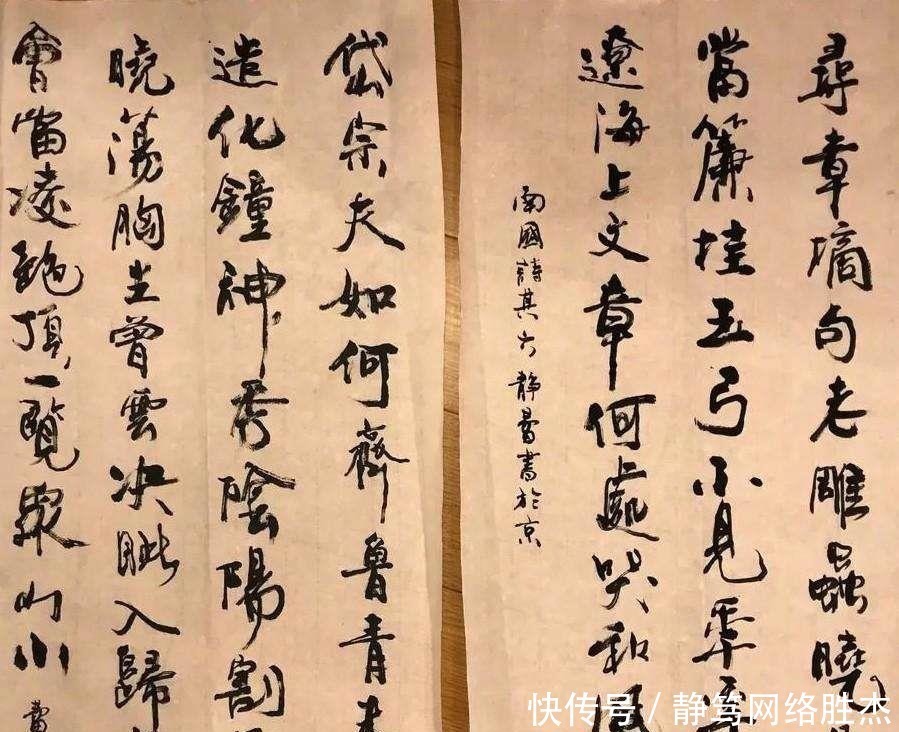 尋章摘句老雕蟲曉
當簾挂玉弓不見年
遼海上文章何處哭秋風
南國詩其六 靜書於京
岱宗夫如何齊魯青未
造化鐘神秀陰陽割
曉蕩胸生曾雲決眥入歸
會當凌絕頂一覽眾山小
快传号 / 静笃网络胜杰